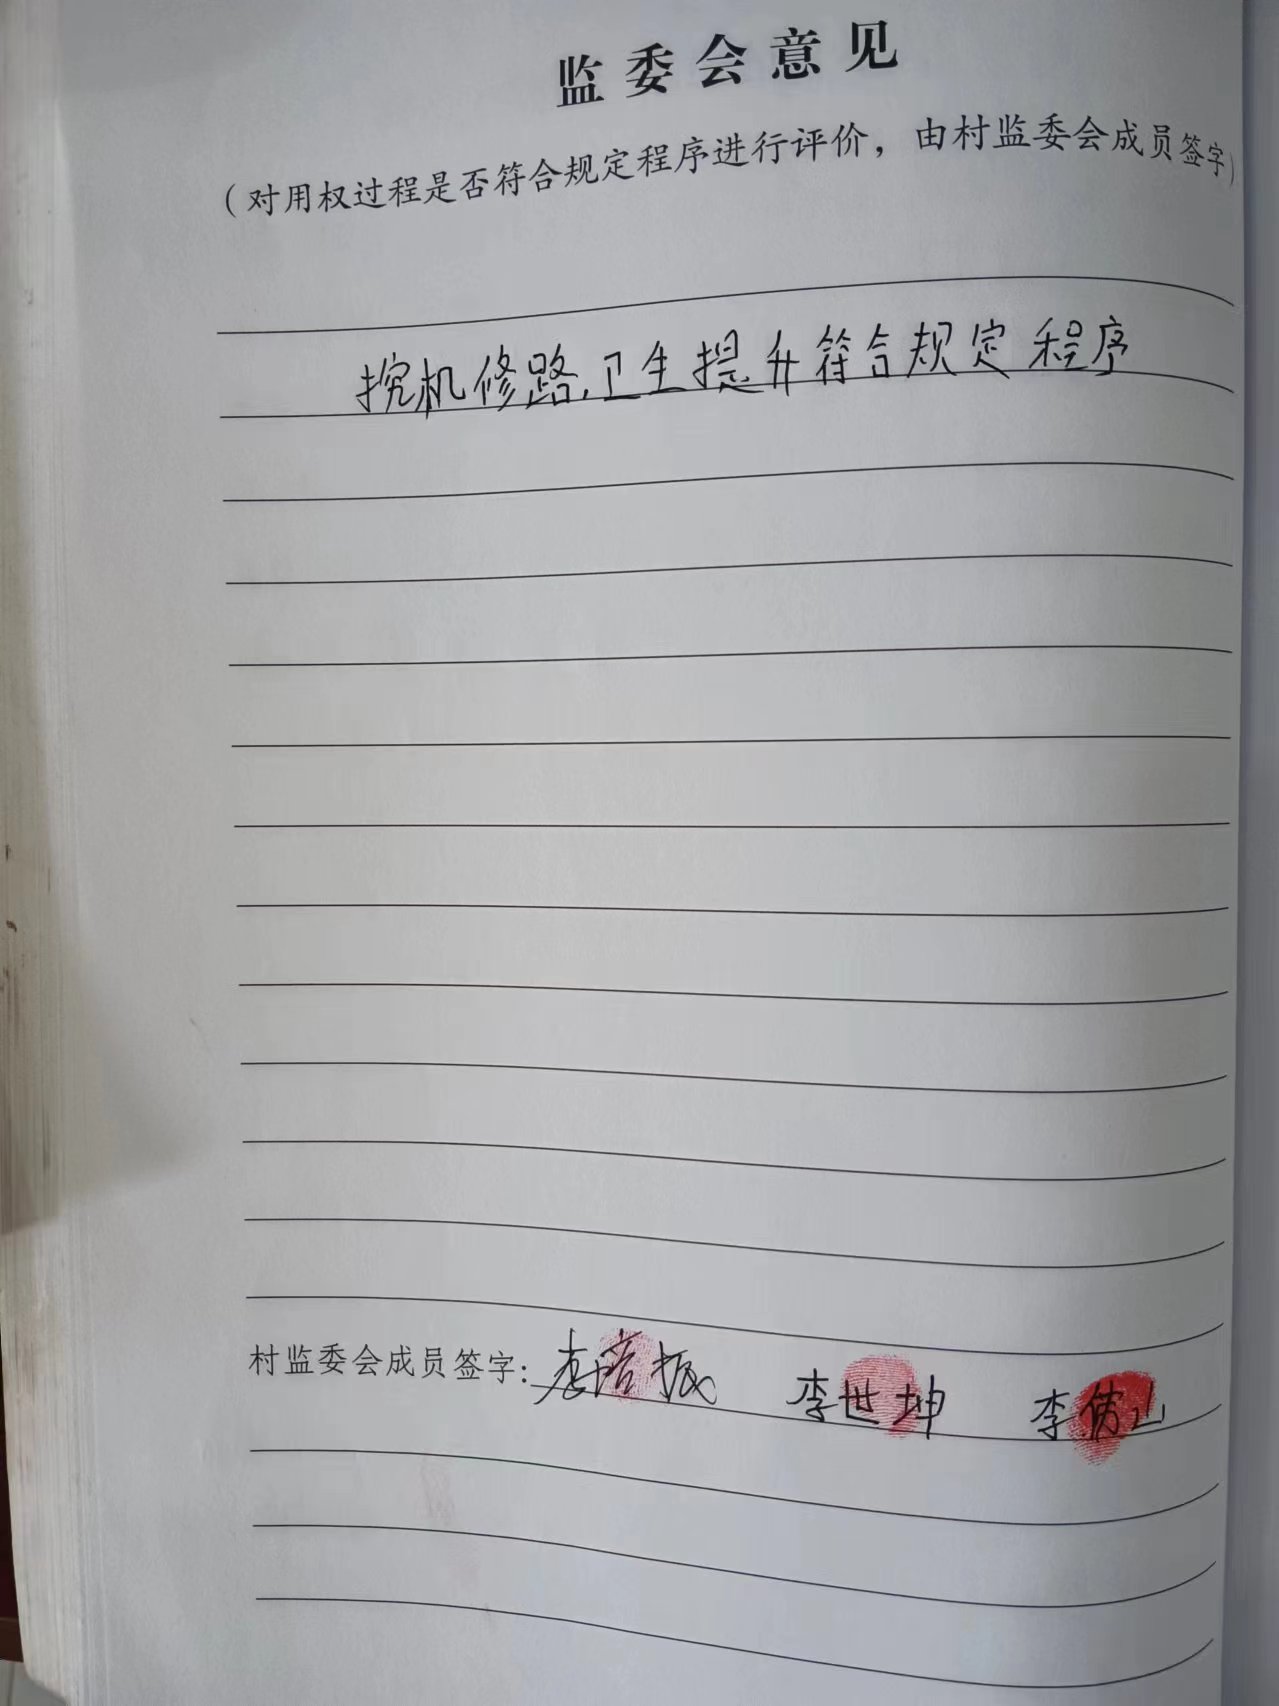 监委会意见
（对用权过程是否符合规定程序进行评价，由村监委会成员签字）
挖机修路、卫生提升符合规定程序
村监委会成员签字：李 振 李世坤 李 山